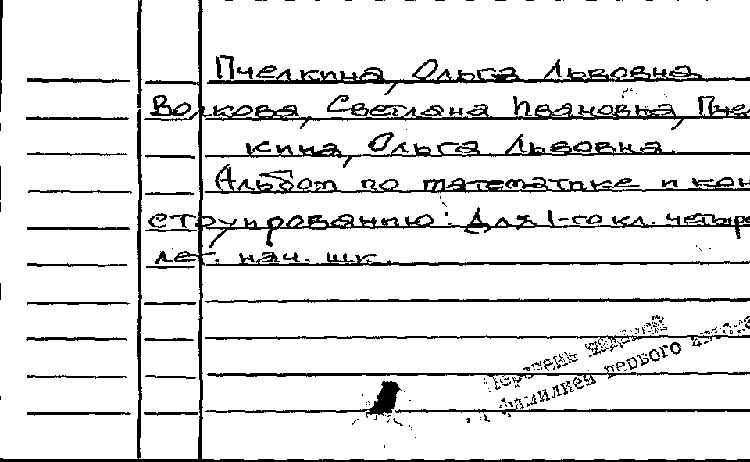 Пчелкина, Ольга Львовна
Волкова, Светлана Ивановна, Пчел
кина, Ольга Львовна.
Альбом по математике и кон
струированию: Для 1-го кл. четыр
лет. нач. шк.
Перечень изданий
фамилией первого